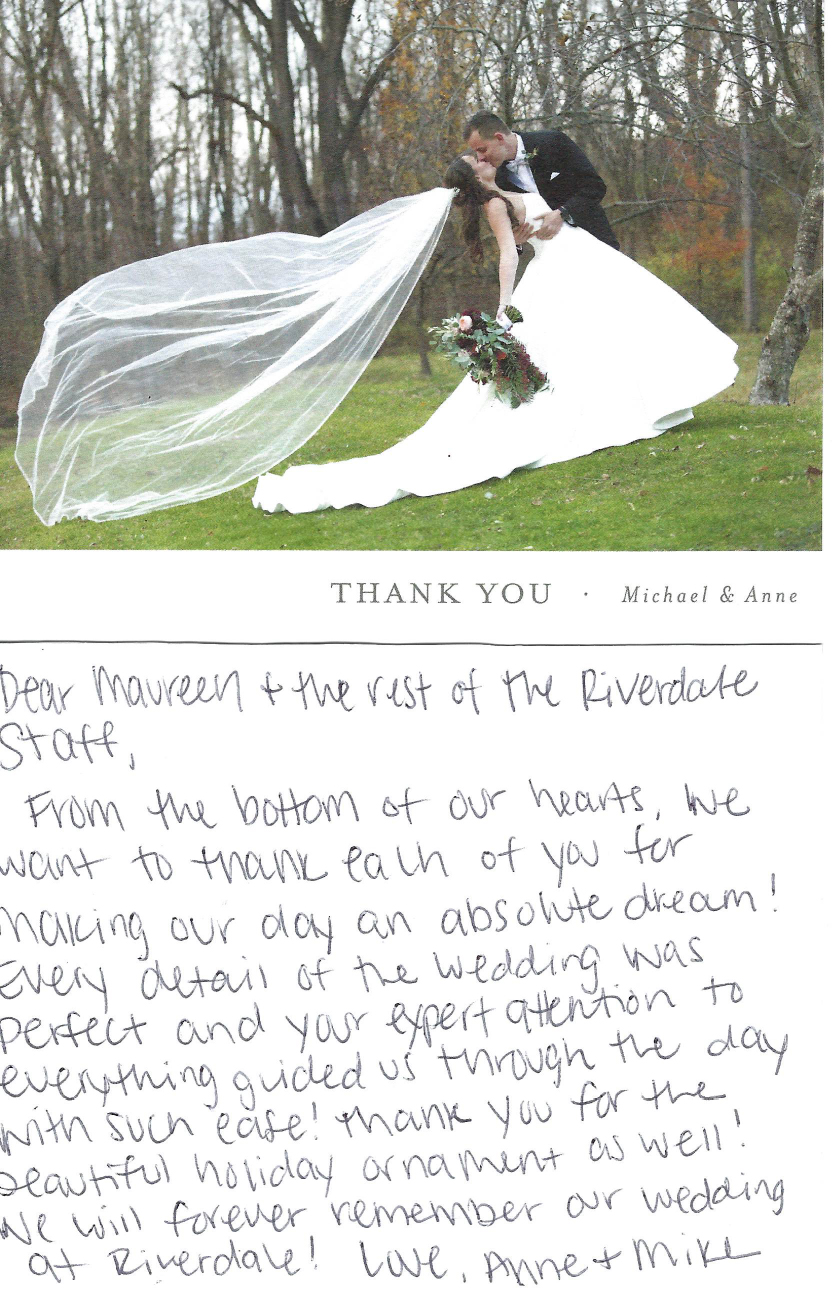 THANK YOU · Michael & Anne
Dear Maureen + the rest of the Riverdale
Staff,
From the bottom of our hearts, we
want to thank each of you for
making our day an absolute dream!
Every detail of the wedding was
perfect and your expert attention to
everything guided us through the day
with such ease! Thank you for the
beautiful holiday ornament as well!
We will forever remember our wedding
at Riverdale! Love, Anne + Mike